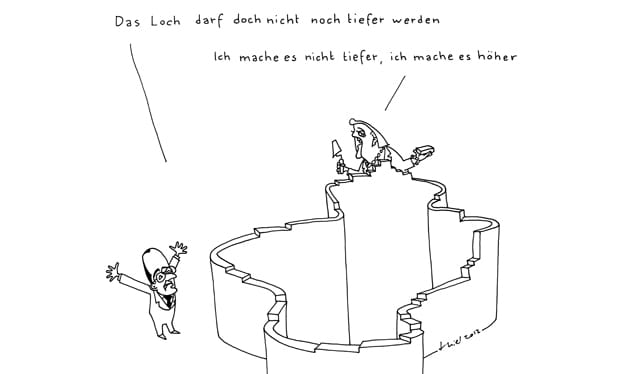 Das Loch darf doch nicht noch tiefer werden
Ich mache es nicht tiefer, ich mache es höher
thiel 2012